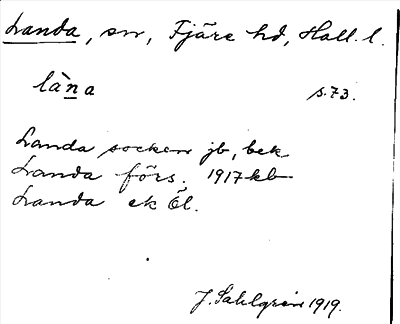 Landa, sn, Fjäre hd, Hall. l.
là̀na s.73.
Landa socken jb, bek
Landa förs. 1917 kb
Landa ek Öl.
J. Sahlgren 1919.